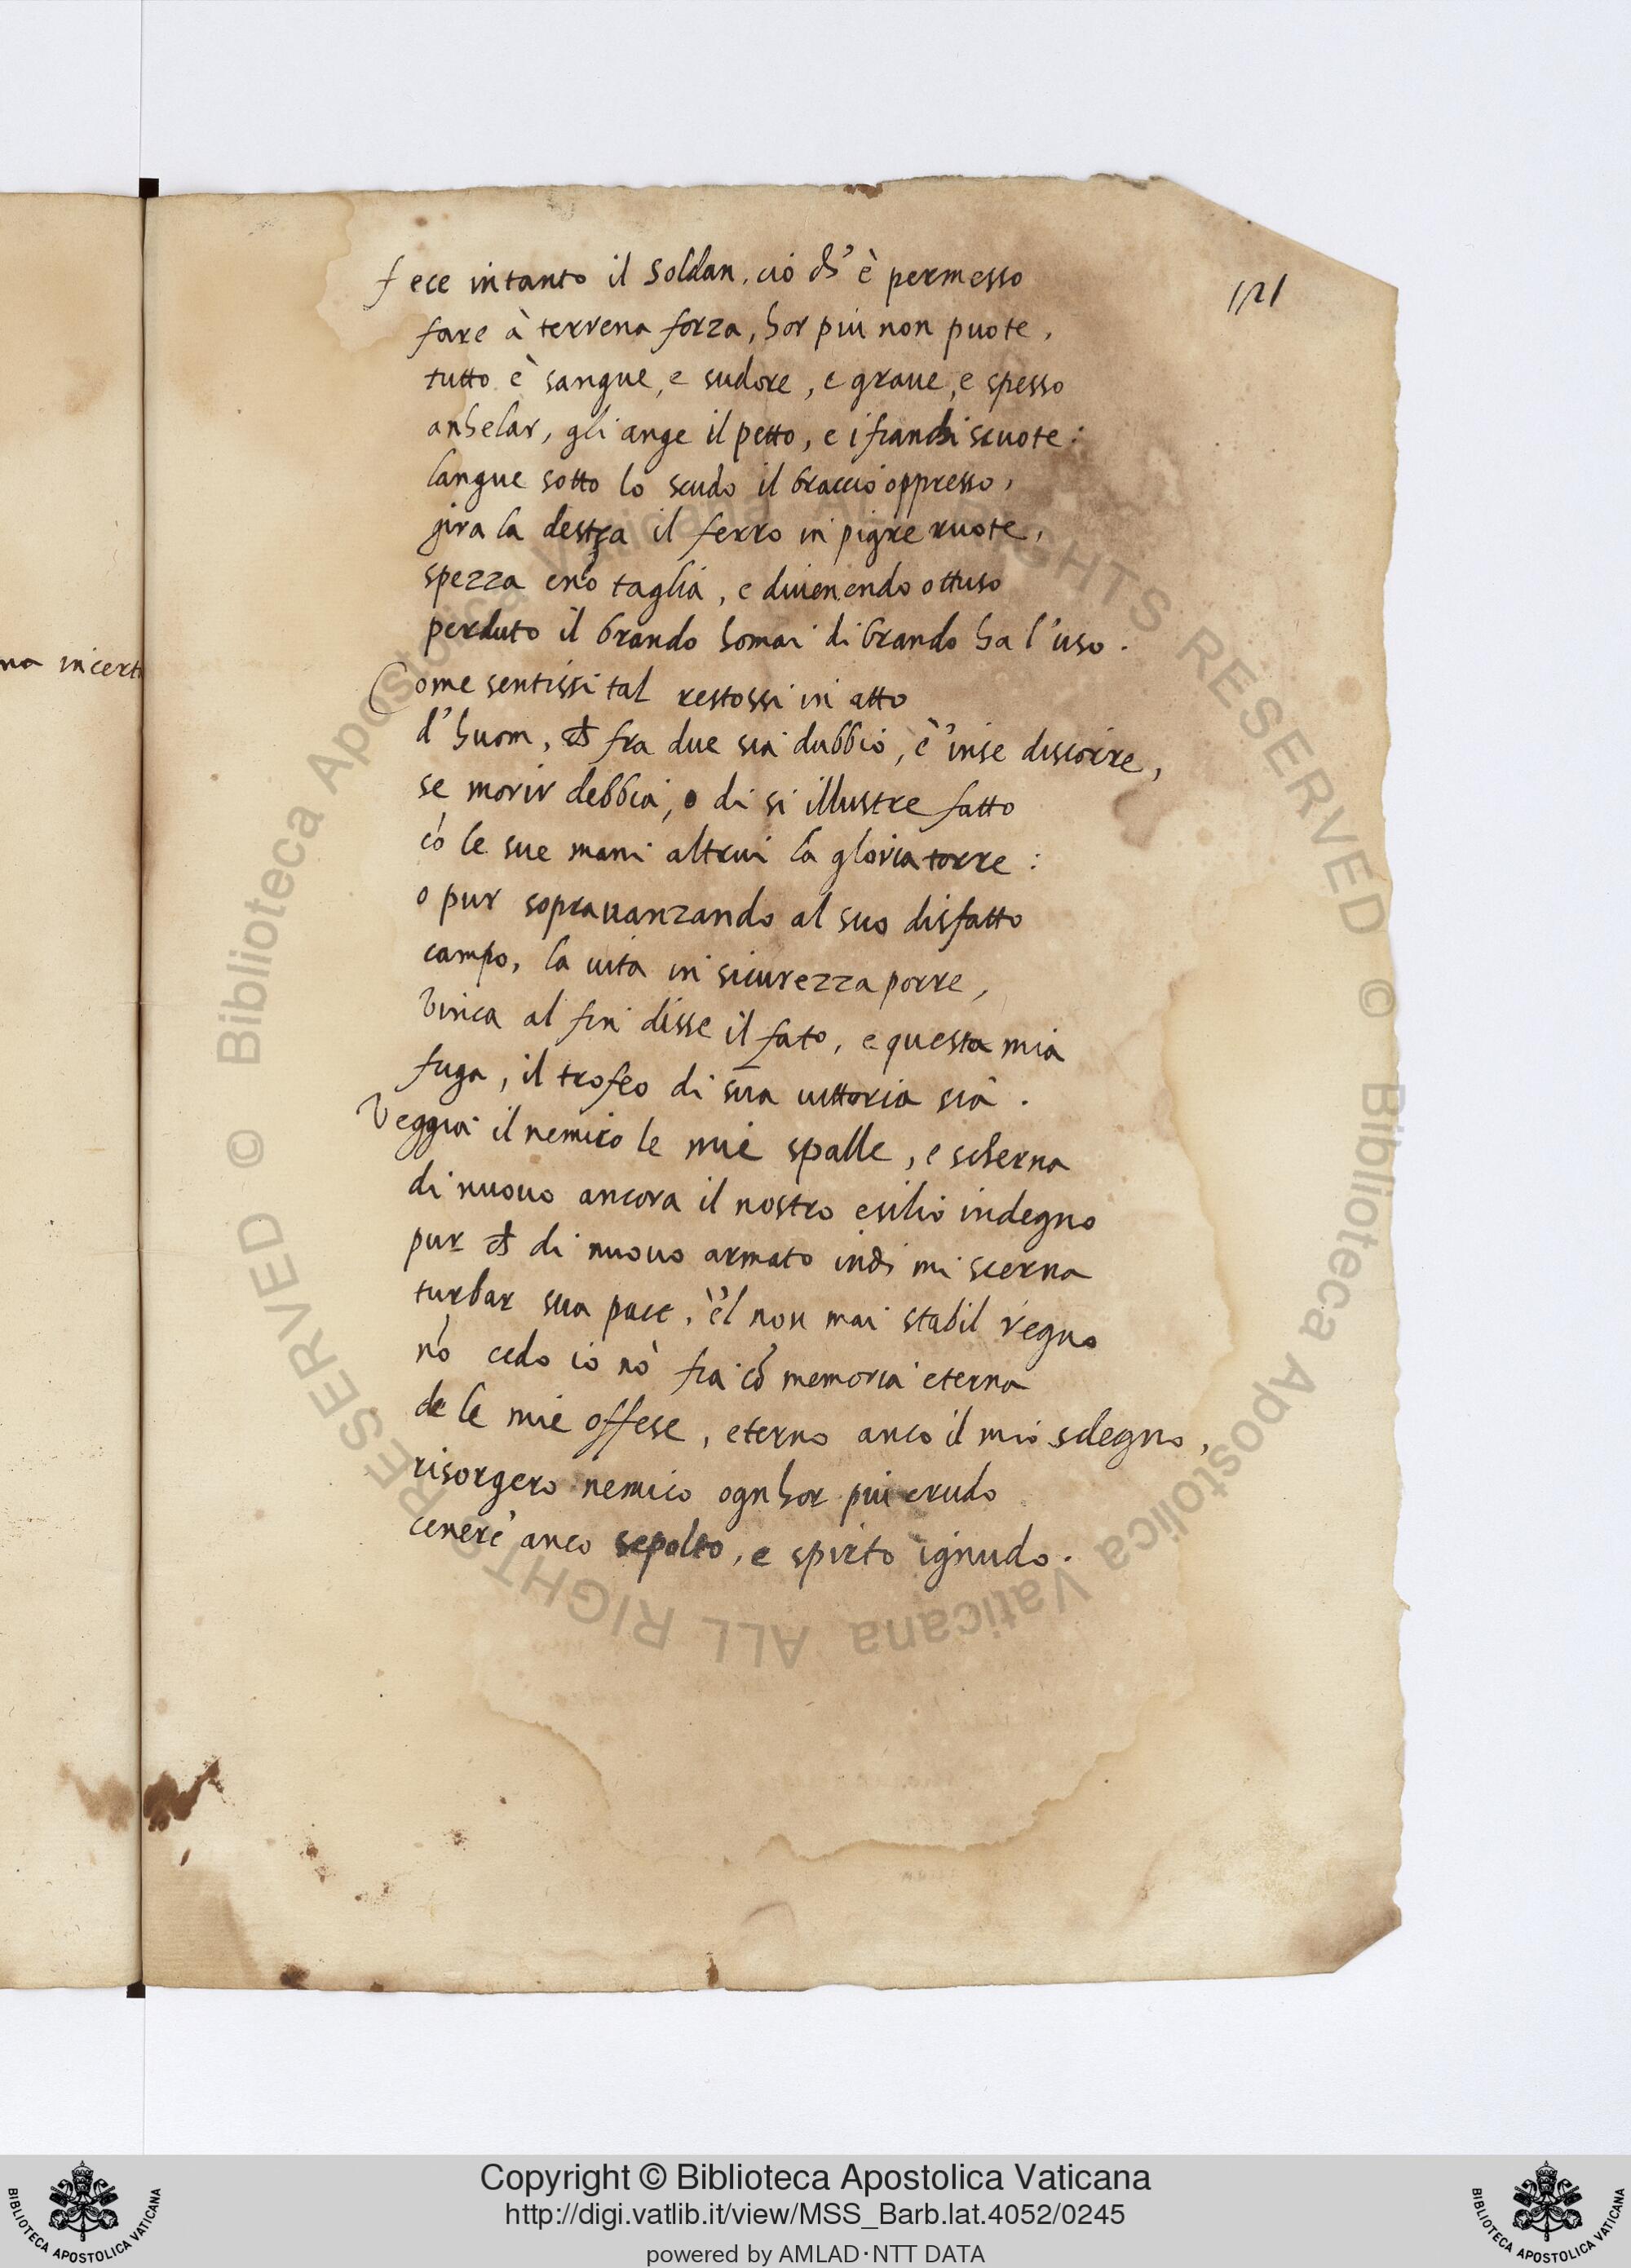 fece intanto il Soldan, ciò ch' è permesso
121
fare à terrena forza, hor piu non puote,
tutto è sangue, e sudore, e graue, e spesso
anhelar, gli ange il petto, e i fianchi scuote:
na incert
langue sotto lo scudo il braccio oppresso,
gira la destra il ferro in pigre ruote,
spezza e nõ taglia, e diuenendo ottuso
perduto il brando homai di brando ha l'uso.
Come sentissi tal restossi in atto
d'huom, ch fra due sia dubbio, è 'n se discorre,
se morir debbia, o di si illustre fatto
cõ le sue mani altrui la gloria torre:
o pur soprauanzando al suo disfatto
campo, la uita in sicurezza porre,
Vinca al fin disse il fato, e questa mia
fuga, il trofeo di sua uittoria sia.
Veggia il nemico le mie spalle, e scherna
di nuouo ancora il nostro esilio indegno
pur ch di nuouo armato indi mi scerna
turbar sua pace, è 'l non mai stabil regno
nõ cedo io nò fia cõ memoria eterna
de le mie offese, eterno anco il mio sdegno,
risorgero nemico ognhor piu crudo
cenere anco sepolto, e spirto ignudo.
© Biblioteca Apostolica Vaticana ALL RIGHTS RESERVED © Biblioteca Apostolica Vaticana ALL RIGHTS RESERVED
Copyright © Biblioteca Apostolica Vaticana
http://digi.vatlib.it/view/MSS_Barb.lat.4052/0245
powered by AMLAD·NTT DATA
BIBLIOTECA APOSTOLICA VATICANA
BIBLIOTECA APOSTOLICA VATICANA